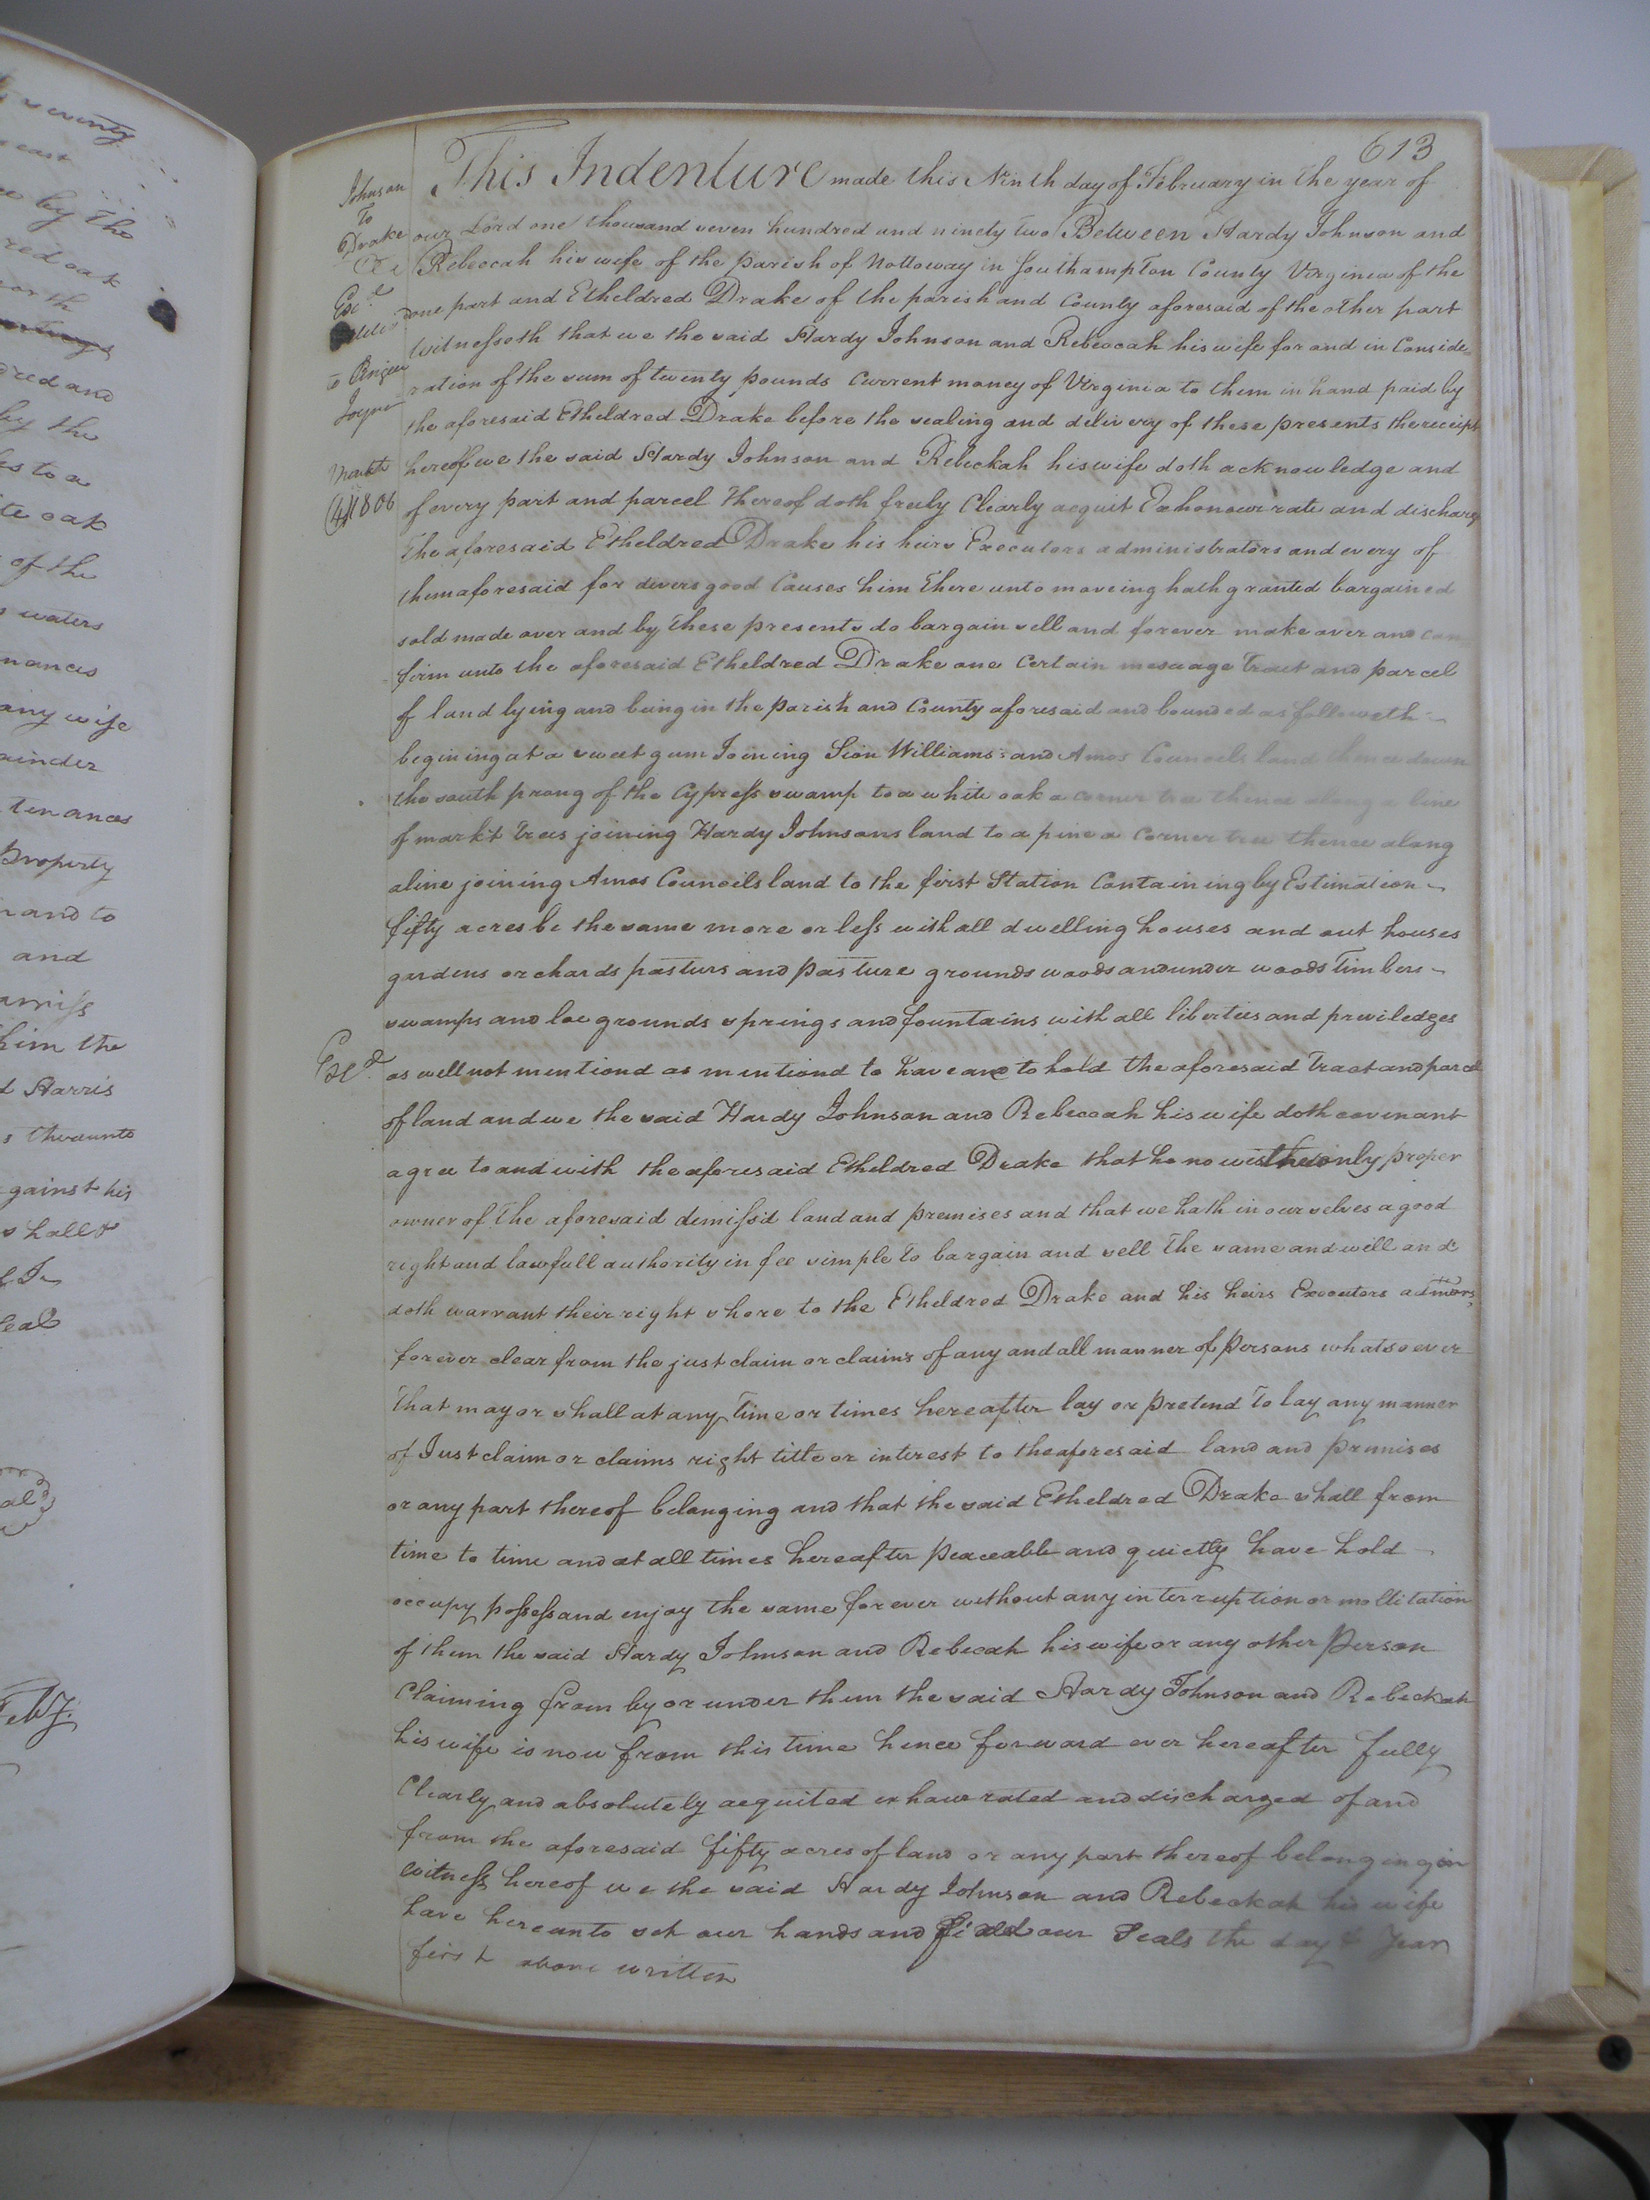 613
Johnson
To
Drake
Exd.
to
Joyner
March
(4) 1806
Exd.
This Indenture made this Ninth day of February in the year of
our Lord one thousand seven hundred and ninety two Between Hardy Johnson and
Rebeccah his wife of the parish of Nottoway in Southampton County Virginia of the
one part and Etheldred Drake of the parish and County aforesaid of the other part
Witnesseth that we the said Hardy Johnson and Rebeccah his wife for and in Conside=
ration of the sum of twenty pounds Current money of Virginia to them in hand paid by
the aforesaid Etheldred Drake before the sealing and delivery of these presents the receipt
hereof we the said Hardy Johnson and Rebeckah his wife doth acknowledge and
of every part and parcel thereof doth freely Clearly acquit Exhonourrate and discharge
The aforesaid Etheldred Drake his heirs Executors administrators and every of
them aforesaid for divers good Causes him there unto moveing hath granted bargained
sold made over and by these presents do bargain sell and forever make over and con
firm unto the aforesaid Etheldred Drake one Certain messuage Tract and parcel
of land lying and being in the parish and County aforesaid and bounded as followeth
begining at a sweet gum Joining Sion Williams and Amos Councels land thence down
the south prong of the Cypress swamp to a white oak a corner tree thence along a line
of markt trees joining Hardy Johnsons land to a pine a Corner tree thence along
a line joining Amos Councils land to the first Station Containing by Estimation
fifty acres be the same more or less with all dwelling houses and out houses
gardens orchards pasturs and pasture grounds woods and under woods Timbers
swamps and loe grounds springs and fountains with all liberties and priviledges
as well not mentiond as mentiond to have and to hold the aforesaid Tract and parcel
of land and we the said Hardy Johnson and Rebeccah his wife doth covenant
agree to and with the aforesaid Etheldred Drake that he now is the only proper
owner of the aforesaid demissd land and premises and that we hath in ourselves a good
right and lawfull authority in fee simple to bargain and sell the same and will and
doth warrant their right shore to the Etheldred Drake and his heirs Executors admors,
forever clear from the just claim or claims of any and all manner of Persons whatsoever
That may or shall at any time or times hereafter lay or pretend To lay any manner
of Just claim or claims right title or interest to the aforesaid land and premises
or any part thereof belonging and that the said Etheldred Drake shall from
time to time and at all times hereafter peaceable and quietly have hold
occupy possess and enjoy the same forever without any interruption or mollitation
of them the said Hardy Johnson and Rebecah his wife or any other Person
Claiming from by or under them the said Hardy Johnson and Rebeckah
his wife is now from this time hence forward ever hereafter fully
Clearly and absolutely acquited exhonerated and discharged of and
from the aforesaid fifty acres of land or any part thereof belonging in
witness hereof we the said Hardy Johnson and Rebeckah his wife
have hereunto set our hands and fixed our Seals the day & Year
first above written
seventy
east
by the
red oak
dred and
by the
to a
oak
of the
waters
any wife
Property
and to
and
him the
Harris
gainst his
shall